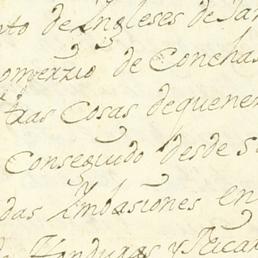 nto de Ingleses de Jam
omerzio de Conchas
tras Cosas de quene
Conseguido desde s
das Imbasiones en
Honduras y Tica